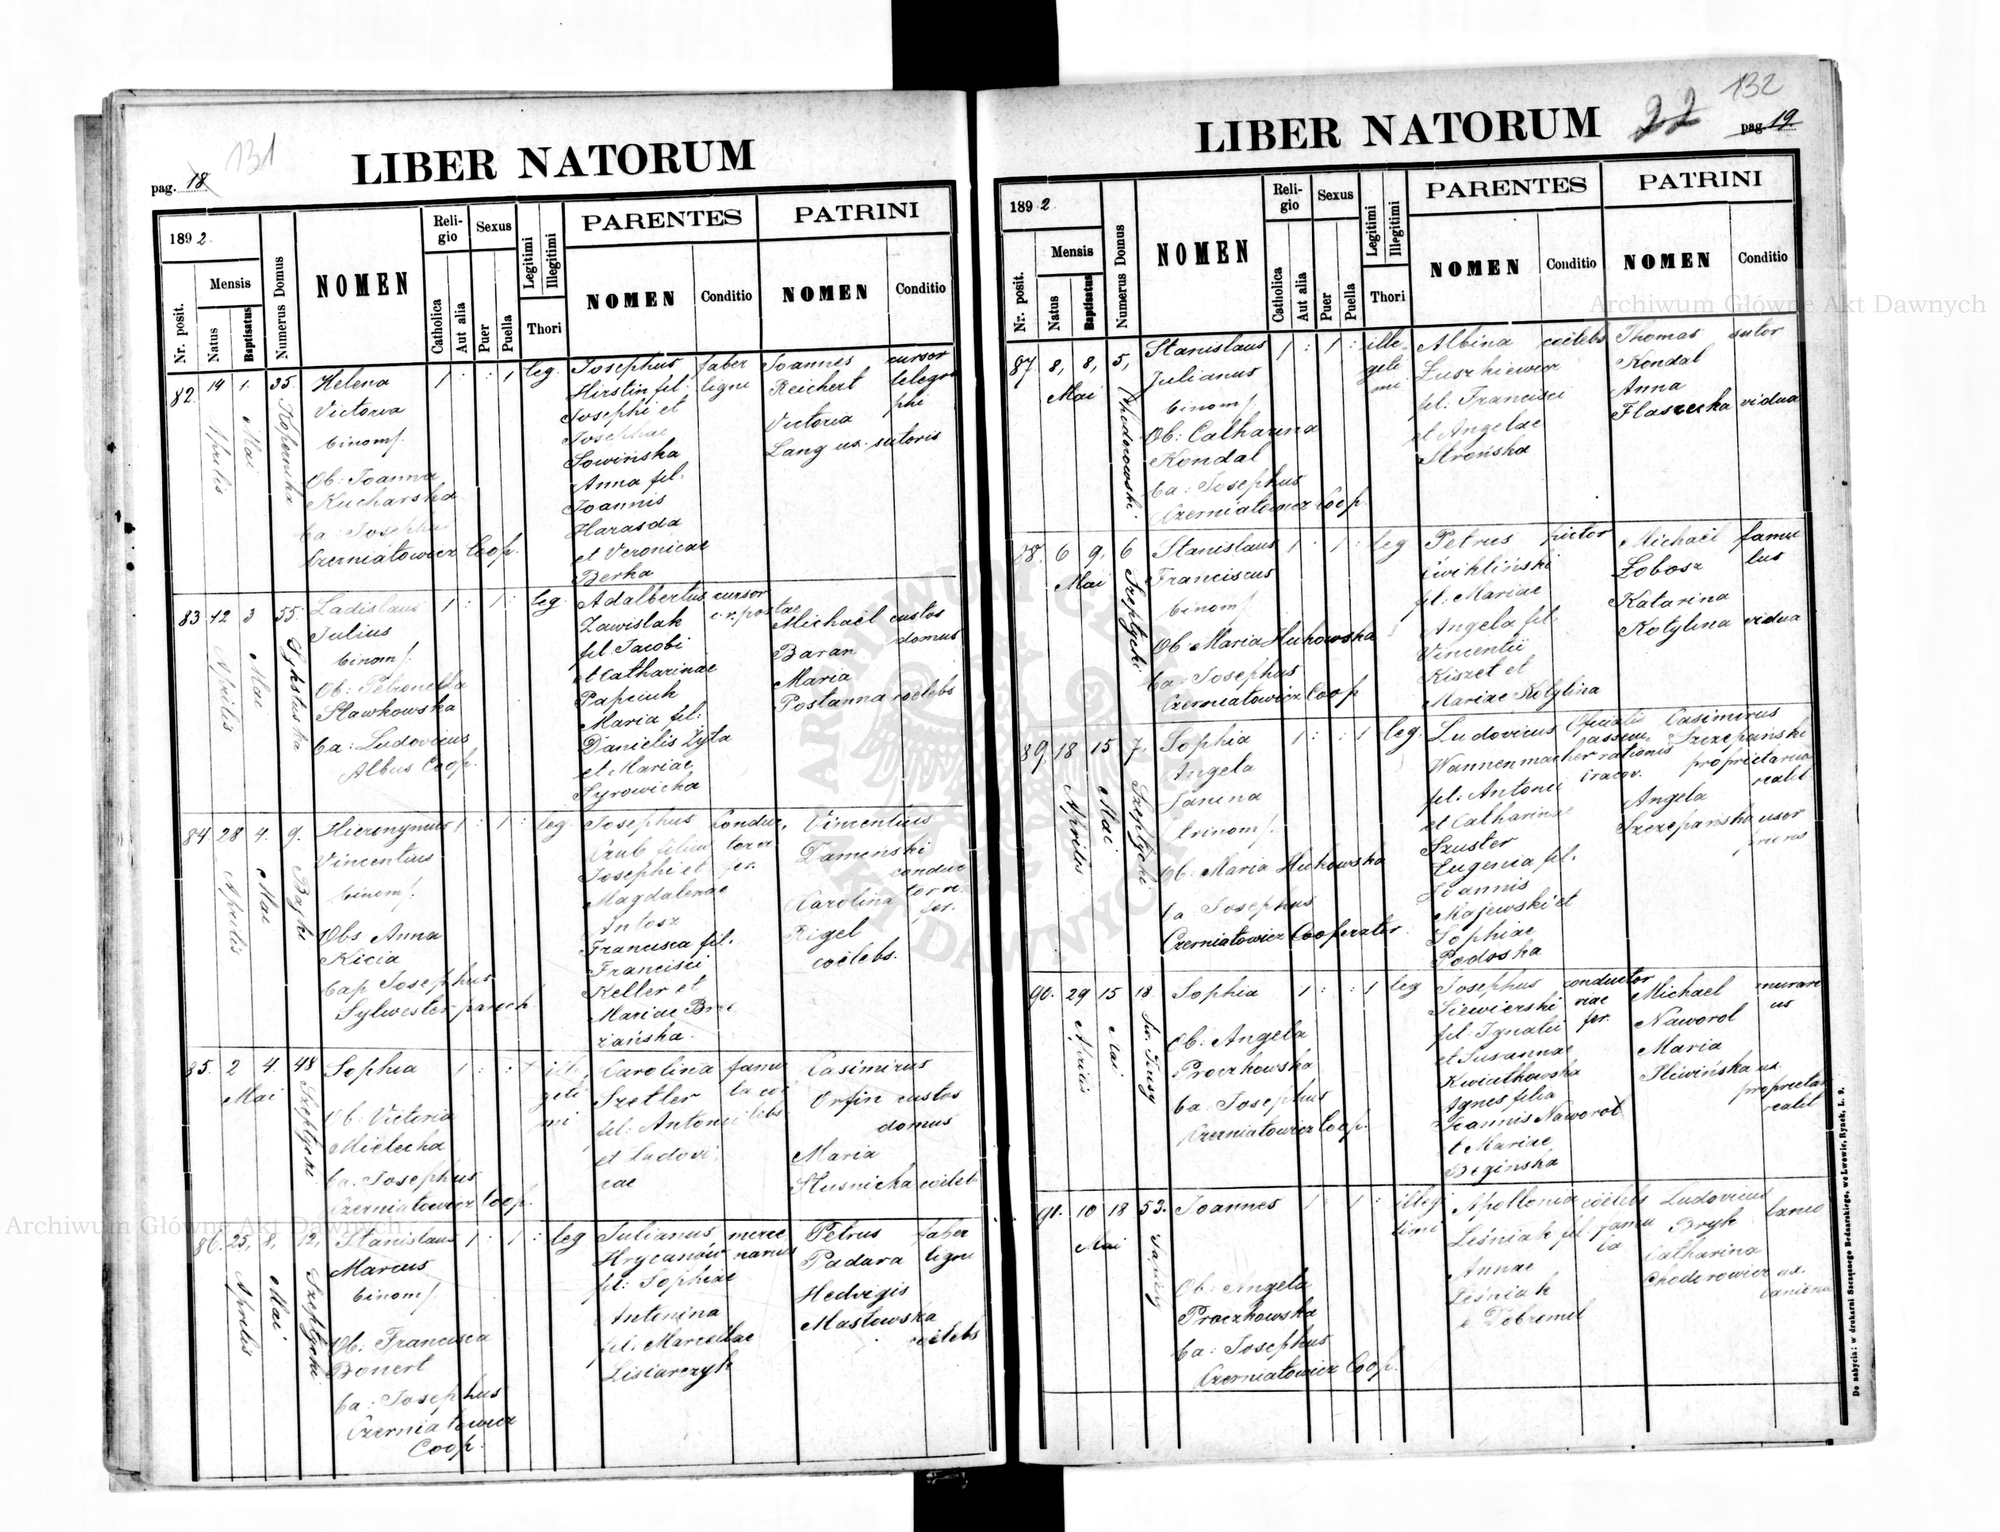 131
pag. 18
LIBER NATORUM
1892.
Nr. posit.
Mensis
Natus
Baptisatus
Numerus Domus
NOMEN
Religio
Catholica
Aut alia
Sexus
Puer
Puella
Legitimi
Illegitimi
Thori
PARENTES
NOMEN
Conditio
PATRINI
NOMEN
Conditio
82. 19 1. 35.
Aprilis
Mai
Kopernika
Helena
Victoria
binom.
Ob: Joanna
Kucharska
Ba: Josephus
Czerniatowicz Coop.
1 : : 1
leg.
Josephus
Hirstin fil.
Josephi et
Josephae
Sowińska
Anna fil.
Joannis
Harasda
et Veronicae
Berka
faber
ligni
Joannes
Reichert
Victoria
Lang ux. sutoris
cursor
telegra
phi
83 12 3 55.
Aprilis
Mai
Sykstuska
Ladislaus
Julius
binom.
Ob: Petronella
Sławkowska
Ba: Ludovicus
Albus Coop.
1 : 1 :
leg.
Adalbertus
Zawislak
fil. Jacobi
et Catharinae
Papciuk
Maria fil:
Danielis Zyta
et Mariae
Syrowicka
cursor
c.r. postae
Michaël custos
Baran domus
Maria
Postanna coelebs
84 28 4. 9.
Aprilis
Mai
Bajki
Hieronymus
Vincentius
binom.
Obs Anna
Kicia
Bap Josephus
Sylwester paroch
1 : 1 :
leg.
Josephus
Czub filius
Josephi et
Magdalenae
Antosz
Francisca fil.
Francisci
Keller et
Mariae Brze
zańska.
Conduc
tor
fer.
Vincentius
Damenski
conduc
tor
fer.
Carolina
Rigel
coelebs.
85. 2 4. 48
Mai
Szeptycki
Sophia
Ob: Victoria
Mielecka
Ba. Josephus
Czerniatowicz Coop.
1 : : 1
ille
geti
mi
Carolina
Szetler
fil: Antonii
et Ludovi
cae
famu
la coe
lebs
Casimirus
Orfin custos
domus
Maria
Slusnicka coeleb
86. 25, 8, 12,
Aprilis
Mai
Szeptycki
Stanislaus
Marcus
binom.
Ob: Francisca
Donert
Ba: Josephus
Czerniatowicz
Coop.
1 : 1 :
leg
Julianus
Hrycanów
fil: Sophiae
Antonina
fil. Marcellae
Lisiarczyk
merce
narius
Petrus
Padara
Hedvigis
Masłowska
coelebs
faber
ligni
132
22
pag. 19
LIBER NATORUM
1892.
Nr. posit.
Mensis
Natus
Baptisatus
Numerus Domus
NOMEN
Religio
Catholica
Aut alia
Sexus
Puer
Puella
Legitimi
Illegitimi
Thori
PARENTES
NOMEN
Conditio
PATRINI
NOMEN
Conditio
87. 8, 8, 5,
Mai
Chodorowski.
Stanislaus
Julianus
binom.
Ob: Catharina
Kondal
Ba: Josephus
Czerniatowicz Coop.
1 : 1 :
ille
geti
mi
Albina
Łuszkiewicz
fil: Francisci
et Angelae
Strońska
coelebs
Thomas
Kondal
Anna
Flaszecka vidua
sutor
88. 6 9, 6
Mai
Szeptycki
Stanislaus
Franciscus
binom.
Ob: Maria Hukowska
Ba: Josephus
Czerniatowicz Coop
1 : 1 :
leg
Petrus
Cwikliński
fil: Mariae
Angela fil.
Vincentii
Kiszet et
Mariae Kotylina
pictor
Michaël
Łobosz
Katarina
Kotylina vidua
famu
lus
89. 18 15 7.
Aprilis
Mai
Szeptycki
Sophia
Angela
Janina
trinom.
Ob. Maria Hukowska
Ba Josephus
Czerniatowicz Cooperator
1 : : 1
leg.
Ludovicus
Wannenmacher
fil: Antonii
et Catharinae
Szuster
Eugenia fil.
Joannis
Majewski et
Sophiae
Podoska
Oficialis
rationis
cracov.
Casimirus
Szczepański
proprietarius
realit
Angela
Szczepańska uxor
90. 29 15 18
Aprilis
Mai
Sw. Teresy
Sophia
Ob: Angela
Proczkowska
Ba: Josephus
Czerniatowicz Coop.
1 : : 1
leg
Josephus
Siewierski
fil: Ignatii
et Susannae
Kwiatkowska
Agnes filia
Joannis Naworol
et Mariae
Beginska
conductor
viae
fer.
Michael
Naworol
Maria
Sliwińska ux.
proprietar
realit
murari
us
91. 10 18 53.
Mai
Sapiehy
Joannes
Ob: Angela
Proczkowska
Ba: Josephus
Czerniatowicz Coop.
1 : 1 :
illegi
timi
Apollonia
Leśniak fil
Annae
Leśniak
e Dobromil
coelebs
famu
la
Ludovicus
Bryk
Catharina
Chodorowicz ux.
laniena
lanio
De nabycia: w drukarni Szczęsnego Bednarskiego, we Lwowie, Rynek, L. 9.
Archiwum Główne Akt Dawnych
Archiwum Główne Akt Dawnych
ARCHIWUM GŁÓWNE AKT DAWNYCH